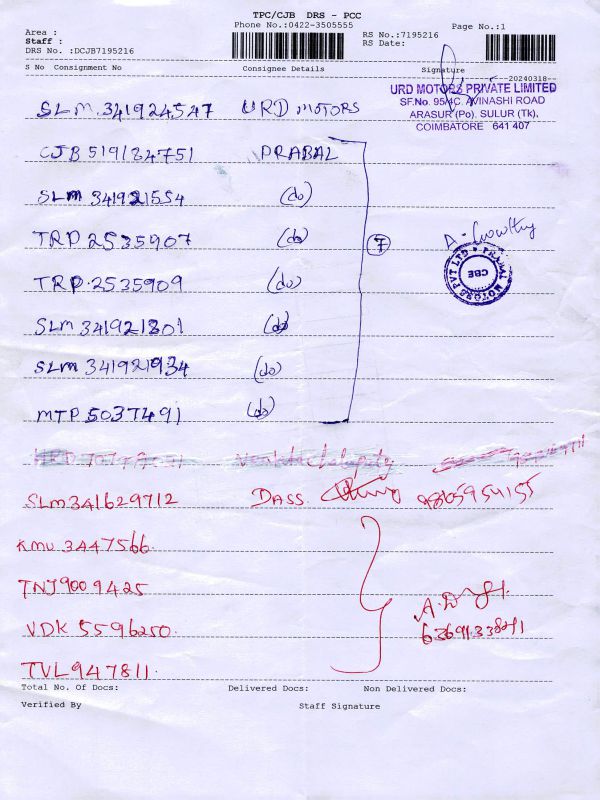 TPC/CJB DRS - PCC
Phone No.:0422-3505555
Page No.:1
Area :
Staff :
DRS No. :DCJB7195216
RS No.:7195216
RS Date:
S No Consignment No Consignee Details Signature
20240318
URD MOTORS PRIVATE LIMITED
SF.No. 95/4C, AVINASHI ROAD
ARASUR (Po). SULUR (Tk),
COIMBATORE 641 407
SLM. 341924547 URD MOTORS
CJB 519184751 PRABAL
SLM 341921554 (do)
TRP 2535907 (do) 7
PRABAL MOTORS PVT LTD
CBE
TRP. 2535909 (do)
SLM 341921801 (do)
SLM 341921934 (do)
MTP 5037491 (do)
SLM 341629712 DASS 9865954155
KMU 3447566
TNJ 9009425
VDK 5596250.
TVL 947811.
Total No. Of Docs: Delivered Docs: Non Delivered Docs:
Verified By Staff Signature